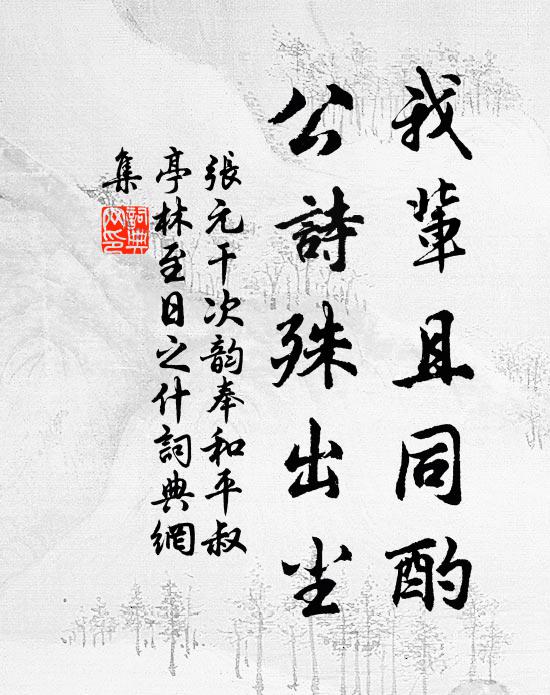 我輩且同酌
公詩殊出尘
張元干次韵奉和平叔
亭林至日之什詞典網
集
詞典
网印